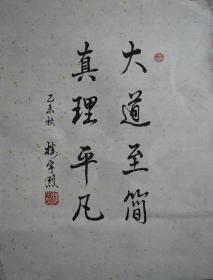 大道至簡
真理平凡
乙未秋 楼宇烈